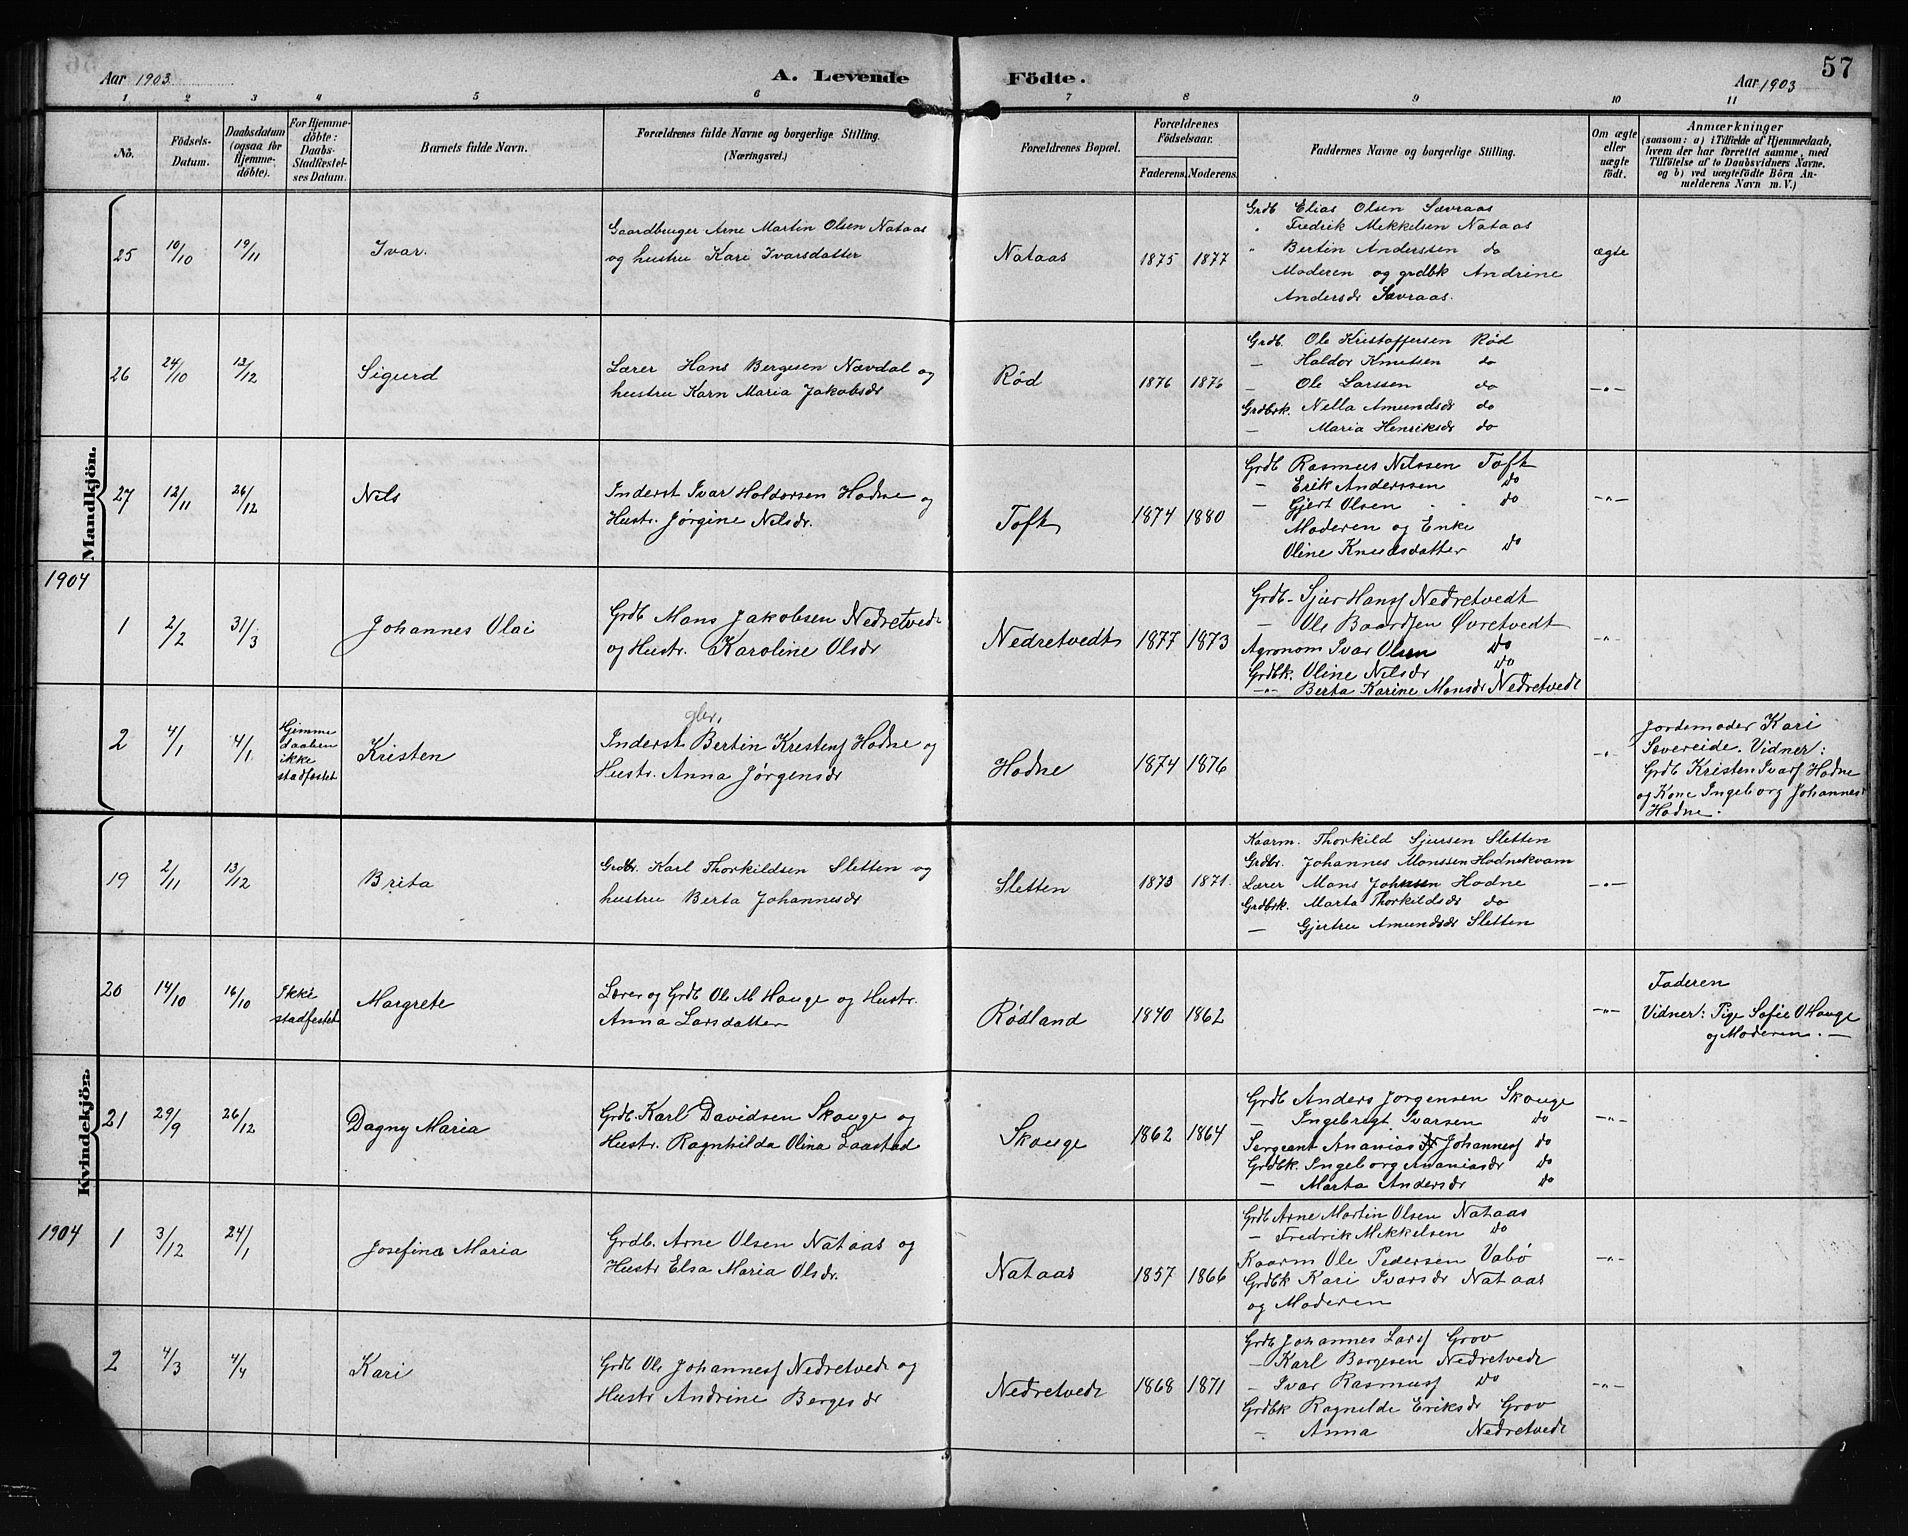 Aar 1903
A. Levende Födte.
Aar 1903
57
1 2 3 4 5 6 7 8 9 10 11
No.
Födsels-
Datum.
Daabsdatum
(ogsaa for
Hjemme-
döbte).
For Hjemme-
döbte:
Daabs-
Stadfæstel-
ses Datum.
Barnets fulde Navn.
Forældrenes fulde Navne og borgerlige Stilling.
(Næringsvei.)
Forældrenes Bopæl.
Forældrenes
Födselsaar.
Faderens. Moderens.
Faddernes Navne og borgerlige Stilling.
Om ægte
eller
uægte
födt.
Anmærkninger
(saasom: a) i Tilfælde af Hjemmedaab,
hvem der har forrettet samme, med
Tilföielse af to Daabsvidners Navne,
og b) ved uægtefödte Börn An-
melderens Navn m. V.)
Mandkjön.
25 10/10 19/11 Ivar.
Gaardbruger Arne Martin Olsen Nataas
og hustru Kari Ivarsdatter
Nataas 1875 1877
Grdb Elias Olsen Sævraas
" Fredrik Mikkelsen Nataas
" Bertin Anderssen do
Moderen og grdbk Andrine
Andersdr Sævraas.
ægte
26 24/10 13/12 Sigurd
Lærer Hans Bergesen Nævdal og
hustru Karn Maria Jakobsdr
Rød 1876 1876
Grdb. Ole Kristoffersen Rød
— Haldor Knutsen do
— Ole Larssen do
Grdbrk. Nella Amundsdr do
— Maria Henriksdr do
—"—
27 12/11 26/12 Nils
Inderst Ivar Haldorsen Hodne og
Hustr. Jørgine Nilsdr.
Toft 1874 1880
Grdb Rasmus Nilssen Toft
— Erik Anderssen do
— Gjert Olsen do
Moderen og Enke
Oline Knudsdatter do
—"—
1904
1 2/2 31/3 Johannes Olai
Grdb Mons Jakobsen Nedretvedt
og Hustr. Karoline Olsdr
Nedretvedt 1877 1873
Grdb- Sjur Hansf Nedretvedt
— Ole Baardsen Øvretvedt
Agronom Ivar Olsen do
Grdbk. Oline Nilsdr do
—"— Berta Karine Monsdr Nedretvedt
—"—
2 4/1 4/1
Hjemme
daaben
ikke
stadfestet
Kristen
gbr.
Inderst Bertin Kristensf Hodne og
Hustr. Anna Jørgensdr
Hodne 1874 1876
—"—
Jordemoder Kari
Sævereide. Vidner:
Grdb Kristen Ivarsf Hodne
og Kone Ingeborg Johannesd
Hodne.
Kvindekjön.
19 2/11 13/12 Brita
Grdbr. Karl Thorkildsen Sletten og
hustru Berta Johannesdr
Sletten 1873 1871.
Kaarm. Thorkild Sjursen Sletten
Grdbr. Johannes Monssen Hodnekvam
Lærer Mons Johnsen Hodne
Grdbrk. Marta Thorkildsdr do
— Gjertru Amundsdr Sletten
—"—
20 14/10 16/10
Ikke
stadfestet
Margrete
Lærer og Grdb Ole M Hauge og Hustr.
Anna Larsdatter
Rødland 1840 1862
—"—
Faderen
Vidner: Pige Sofie O Hauge
og Moderen. —
21 29/9 26/12 Dagny Maria
Grdb. Karl Davidsen Skauge og
Hustr. Ragnhilda Olina Laastad
Skauge 1862 1864
Grdb Anders Jørgensen Skauge
— Ingebrigt Ivarsen do
Sergeant Ananias Johannesf do
Grdbk. Ingeborg Ananiasdr do
— Marta Andersdr do
—"—
1904
1 3/12 24/1 Josefina Maria
Grdb. Arne Olsen Nataas og
Hustr Elsa Maria Olsdr.
Nataas 1857 1866
Grdb Arne Martin Olsen Nataas
— Fredrik Mikkelsen do
Kaarm Ole Pedersen Vabø
Grdbk Kari Ivarsdr Nataas
og Moderen
—"—
2 4/3 4/4 Kari
Grdb Ole Johannesf Nedretvedt og
Hustr Andrine Bergesdr
Nedretvedt 1868 1871
Grdb Johannes Larsf Grov
— Karl Bergesen Nedretvedt
— Ivar Rasmusf do
Grdbk Ragnilde Eriksdr Grov
— Anna Nedretvedt
—"—